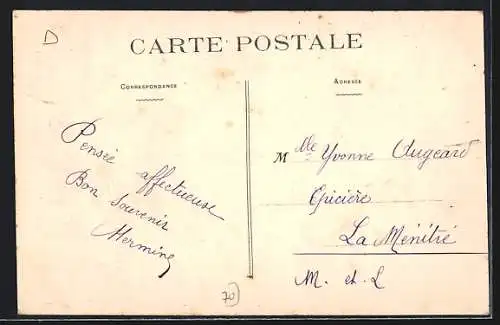 D
CARTE POSTALE
CORRESPONDANCE
ADRESSE
Pensée affectueuse
Bon Souvenir
Hermine
Mlle Yvonne Augeard
Epicière
La Ménitré
M. et L
70